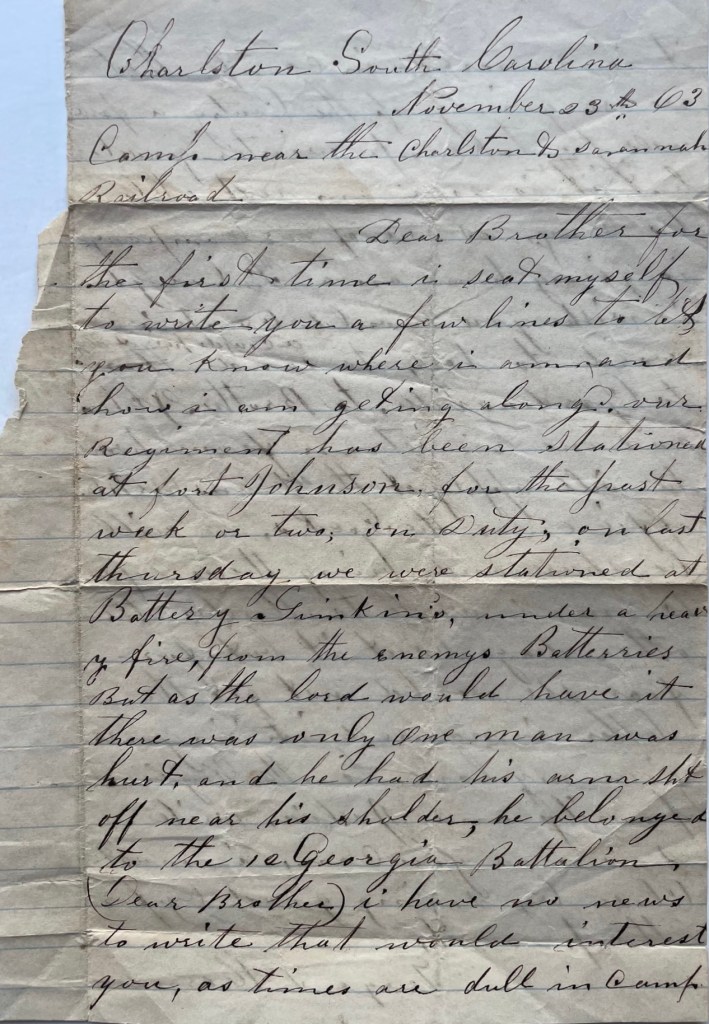 Charlston South Carolina
November 23th 63
Camp near the Charlston & Savannah
Railroad
Dear Brother for
the first time i seat myself
to write you a few lines to let
you know where i am, and
how i am geting along. our
Regiment has been stationed
at fort Johnson. for the past
week or two, on Duty, on last
thursday we were stationed at
Battery Simkins, under a heav
y fire, from the enemys Batterries
But as the lord would have it
there was only one man was
hurt. and he had his arm sht
off near his sholder, he belonged
to the 12 Georgia Battalion,
(Dear Brother) i have no news
to write that would interest
you, as times are dull in Camp